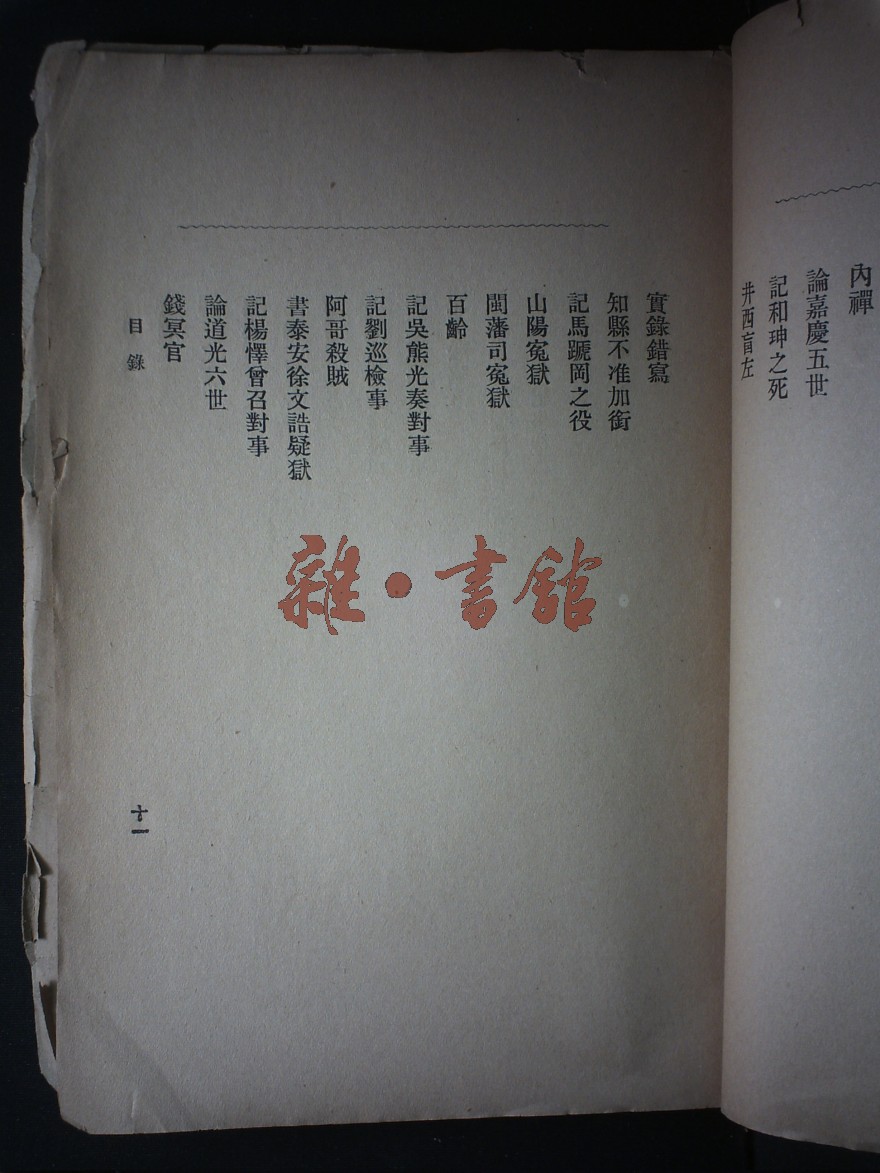 內禪
論嘉慶五世
記和珅之死
井西盲左
實錄錯寫
知縣不准加銜
記馬蹏岡之役
山陽冤獄
閩藩司冤獄
百齡
記吳熊光奏對事
記劉巡檢事
阿哥殺賊
書泰安徐文誥疑獄
記楊懌曾召對事
論道光六世
錢冥官
目錄
十一
雜·書館